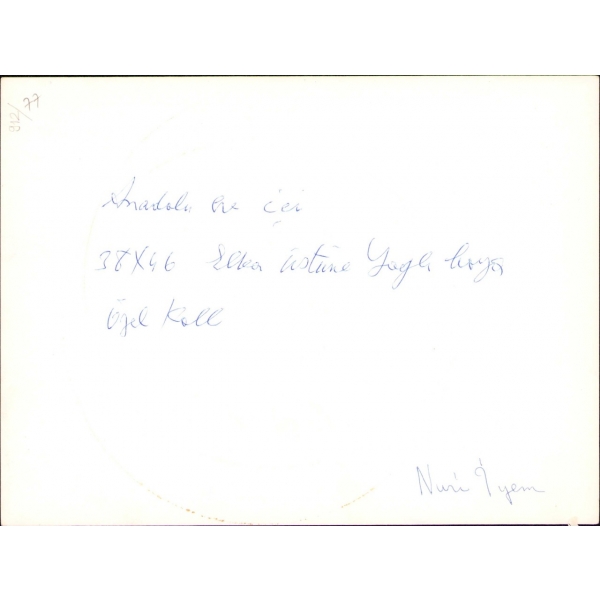 912/77
Anadolu ev içi
38X46 Elka üstüne Yağlı boya
Özel Koll
Nuri İyem